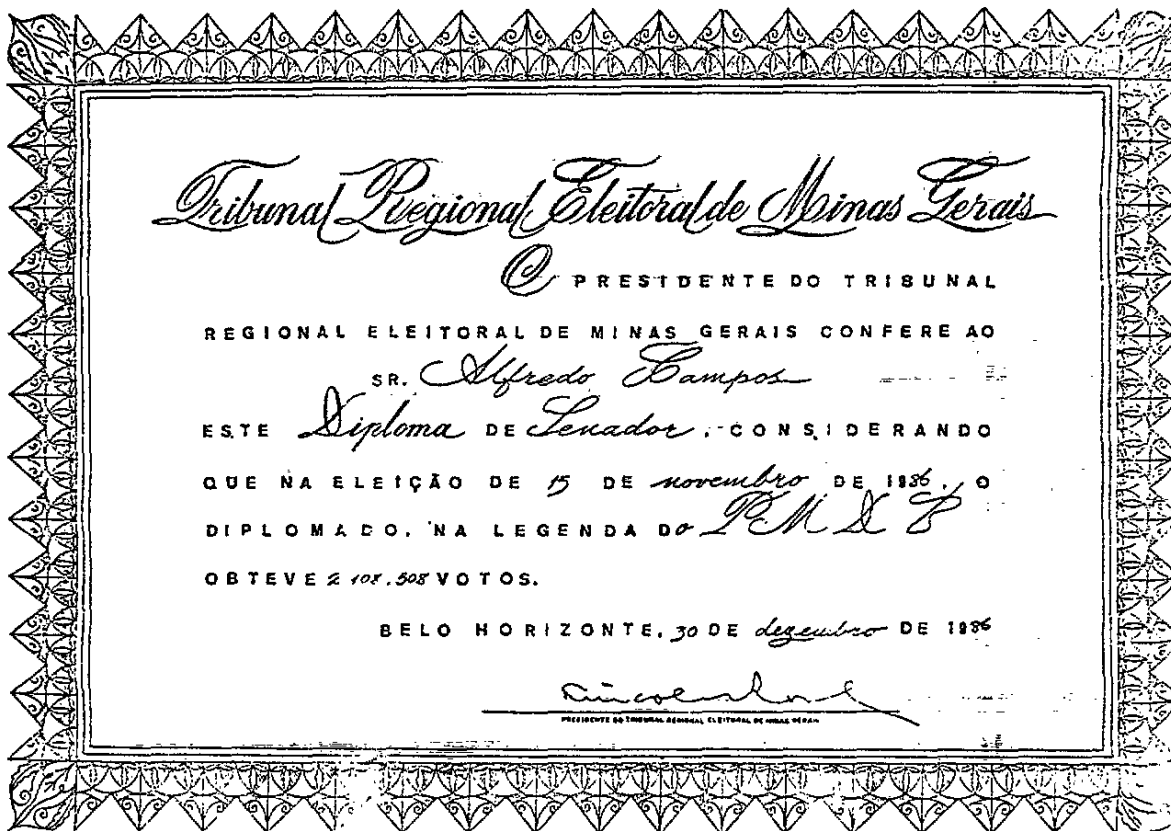 Tribunal Regional Eleitoral de Minas Gerais
O PRESIDENTE DO TRIBUNAL
REGIONAL ELEITORAL DE MINAS GERAIS CONFERE AO
SR. Alfredo Campos
ESTE Diploma DE Senador, CONSIDERANDO
QUE NA ELEIÇÃO DE 15 DE novembro DE 1986, O
DIPLOMADO, NA LEGENDA DO PMDB
OBTEVE 2 108.508 VOTOS.
BELO HORIZONTE, 30 DE dezembro DE 1986
PRESIDENTE DO TRIBUNAL REGIONAL ELEITORAL DE MINAS GERAIS